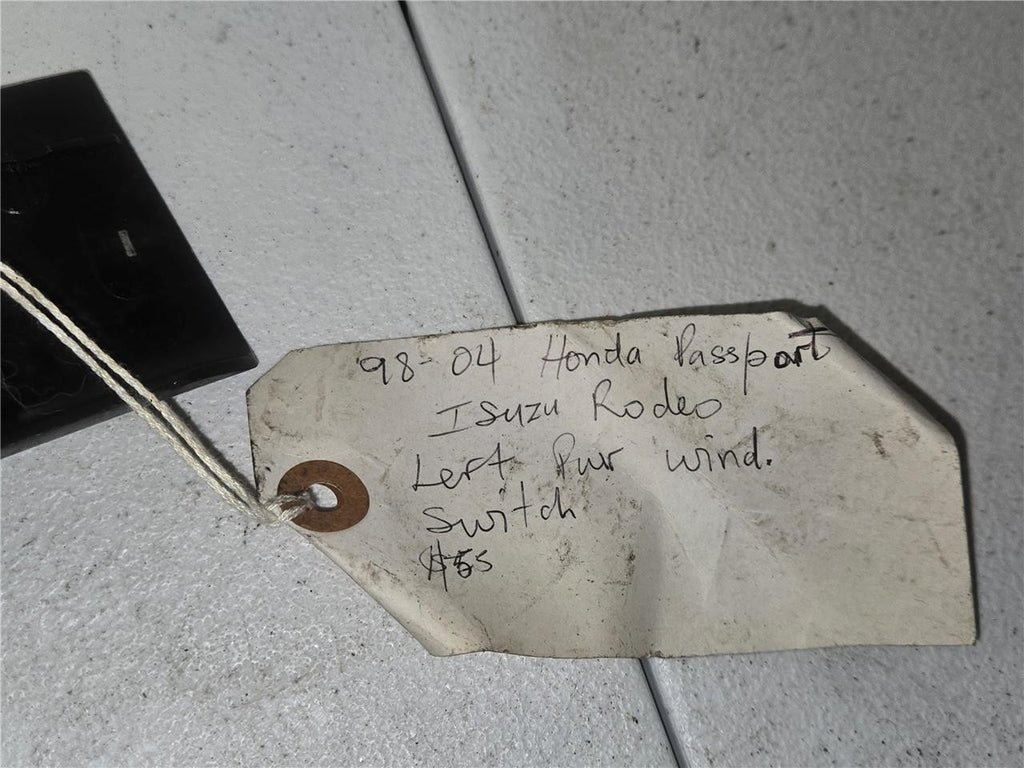 '98-04 Honda Passport
Isuzu Rodeo
Left Pwr wind.
Switch